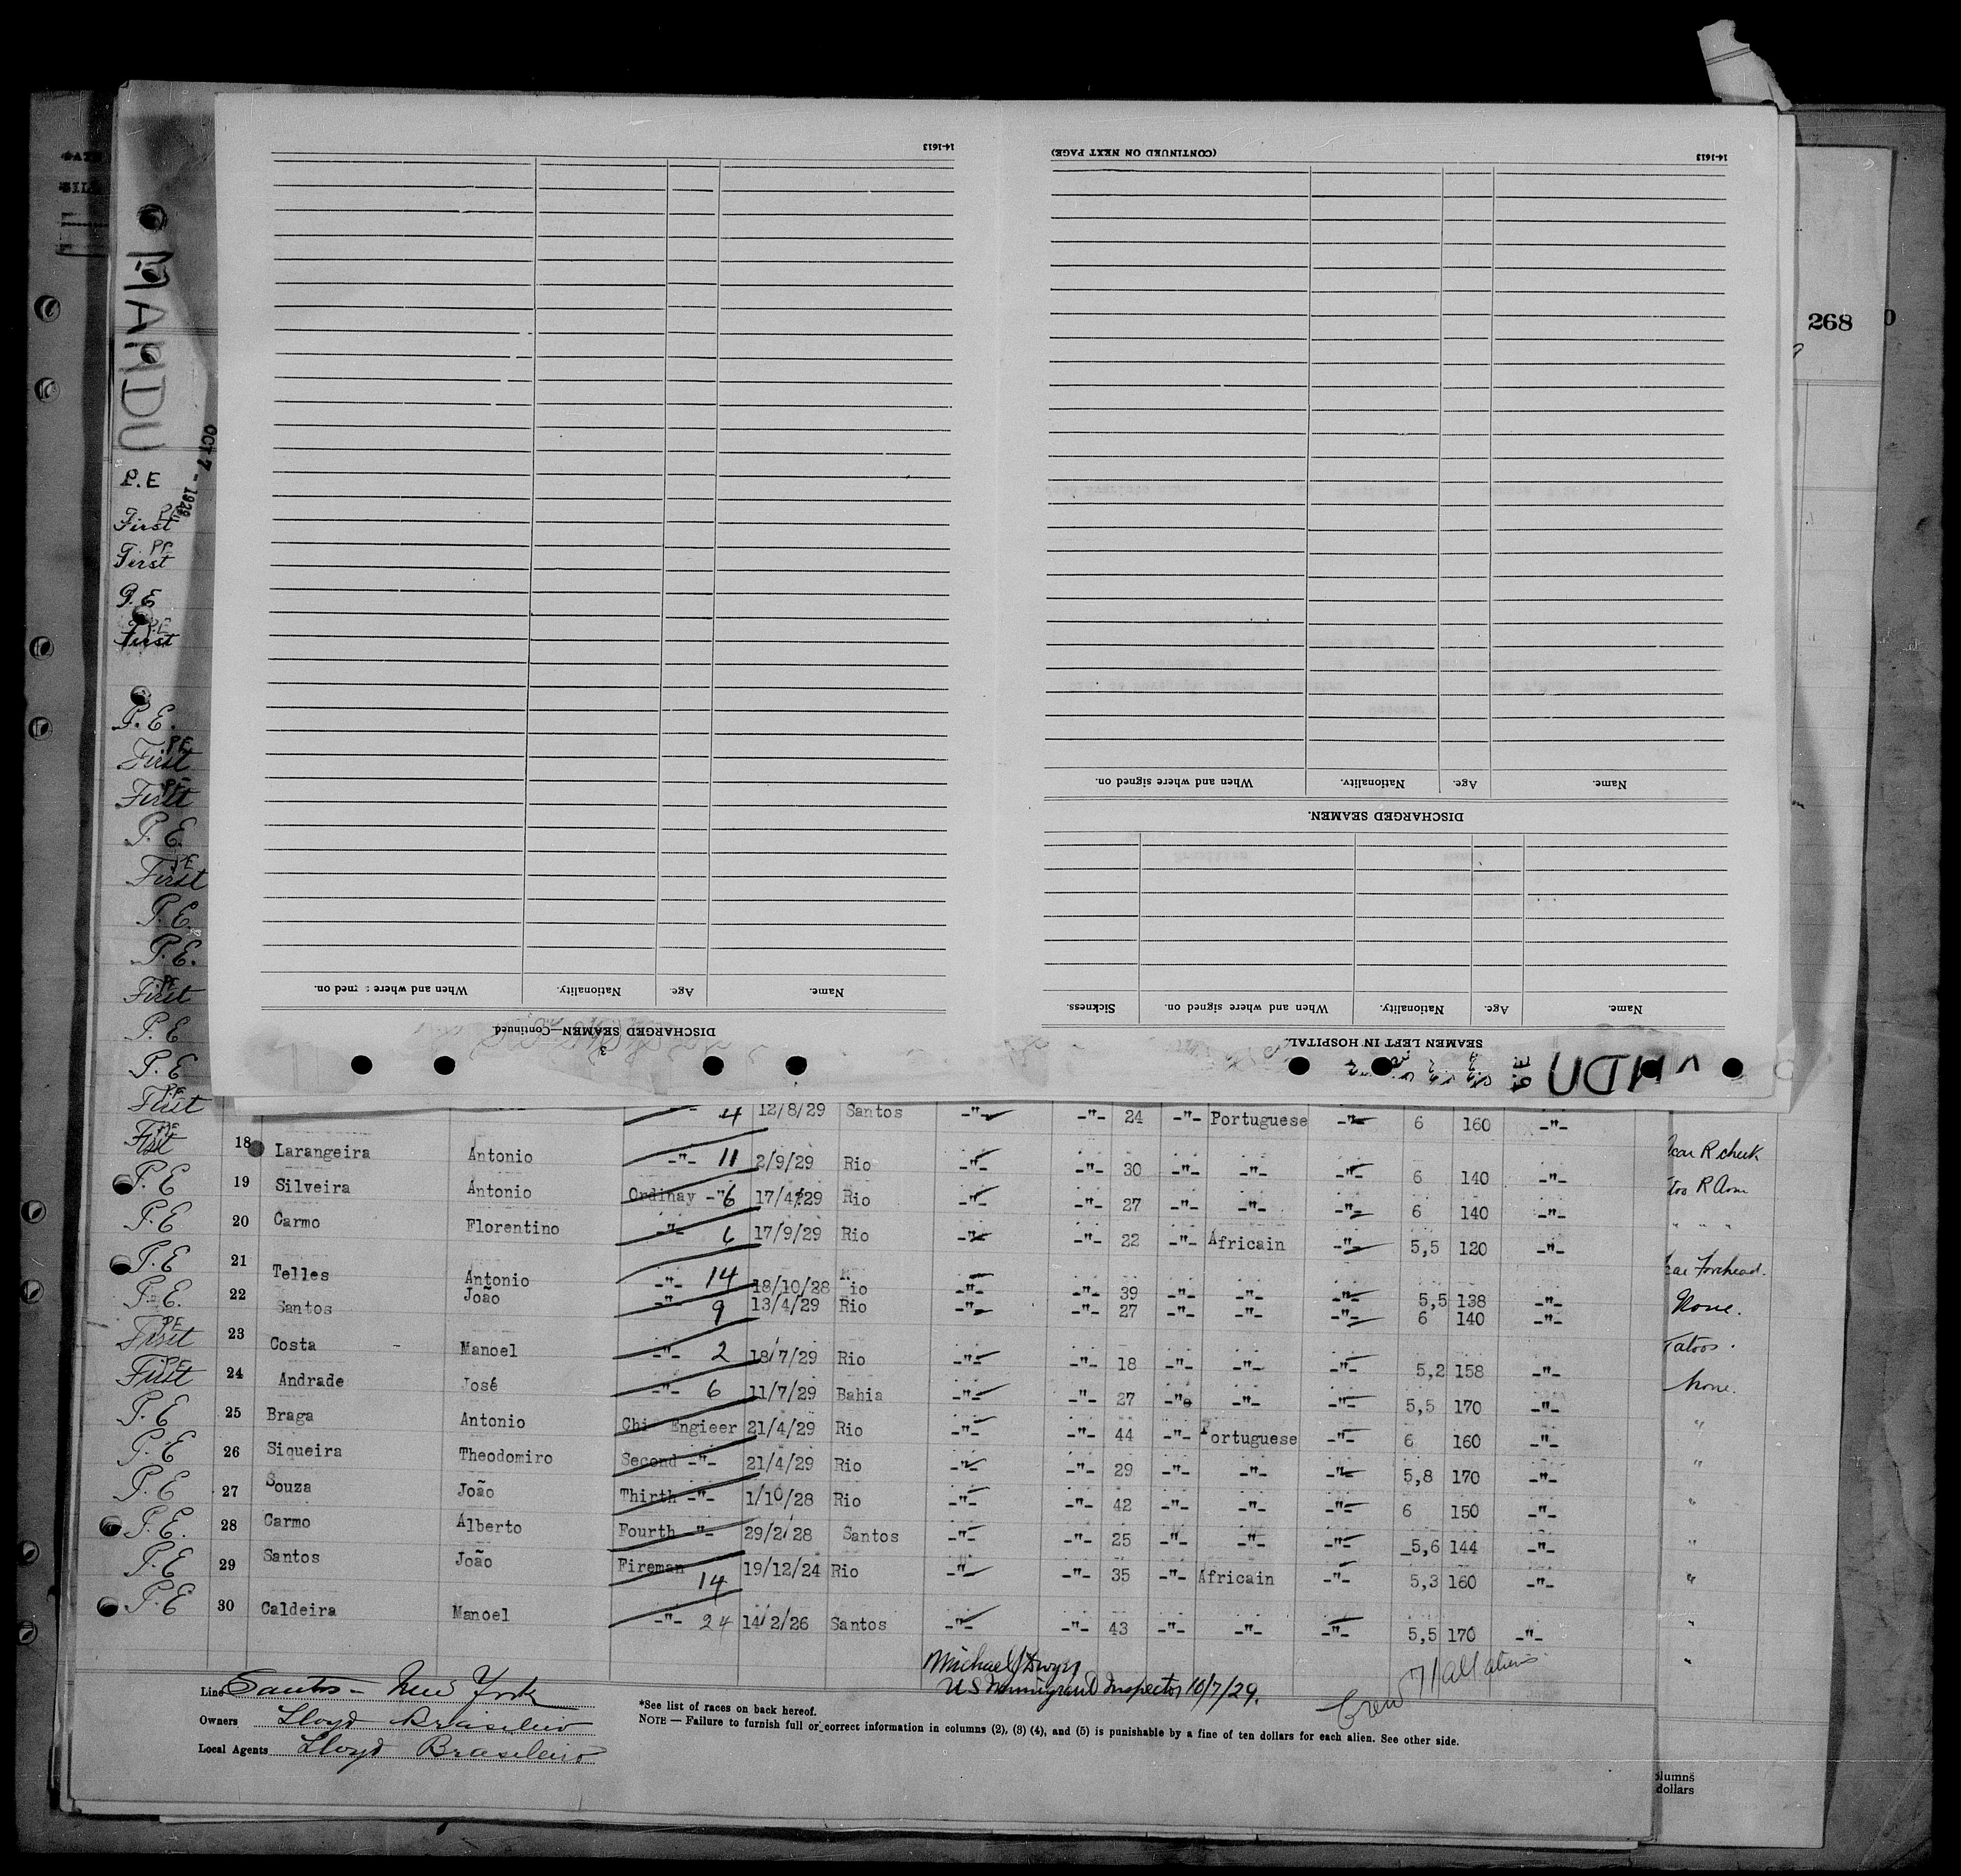 14-1613
(CONTINUED ON NEXT PAGE) 14-1613
268
MANDU
OCT 7 - 1929
P.E
First PE
First PE
P.E
First P.E
P.E.
First PE
First PE
P.E.
First PE
P.E.
P.E.
First PE
P.E
P.E
First PE
Name. Age. Nationality. When and where signed on.
DISCHARGED SEAMEN.
Name. Age. Nationality. When and where signed on. Sickness.
SEAMEN LEFT IN HOSPITAL.
Name. Age. Nationality. When and where signed on.
DISCHARGED SEAMEN—Continued.
3
4 12/8/29 Santos -"- -"- 24 -"- Portuguese -"- 6 160 -"-
First PE 18 Larangeira Antonio -"- 11 2/9/29 Rio -"- -"- 30 -"- -"- -"- 6 140 -"- R cheek
P.E 19 Silveira Antonio Ordinay -"- 6 17/4/29 Rio -"- -"- 27 -"- -"- -"- 6 140 -"- R Arm
P.E 20 Carmo Florentino -"- 6 17/9/29 Rio -"- -"- 22 -"- Africain -"- 5,5 120 -"- " " "
P.E 21 Telles Antonio -"- 14 18/10/28 Rio -"- -"- 39 -"- -"- -"- 5,5 138 -"- Forehead.
P.E. 22 Santos João -"- 9 13/4/29 Rio -"- -"- 27 -"- -"- -"- 6 140 -"- None.
First PE 23 Costa - Manoel -"- 2 18/7/29 Rio -"- -"- 18 -"- -"- -"- 5,2 158 -"- Tatoos.
First PE 24 Andrade José -"- 6 11/7/29 Bahia -"- -"- 27 -"- -"- -"- 5,5 170 -"- None.
P.E 25 Braga Antonio Chi Engieer 21/4/29 Rio -"- -"- 44 -"- Portuguese -"- 6 160 -"- "
P.E 26 Siqueira Theodomiro Second -"- 21/4/29 Rio -"- -"- 29 -"- -"- -"- 5,8 170 -"- "
P.E 27 Souza João Thirth -"- 1/10/28 Rio -"- -"- 42 -"- -"- -"- 6 150 -"- "
P.E. 28 Carmo Alberto Fourth -"- 29/2/28 Santos -"- -"- 25 -"- -"- -"- 5,6 144 -"- "
P.E 29 Santos João Fireman 14 19/12/24 Rio -"- -"- 35 -"- Africain -"- 5,3 160 -"- "
P.E 30 Caldeira Manoel -"- 24 14/2/26 Santos -"- -"- 43 -"- -"- -"- 5,5 170 -"- "
Michael J Dwyer "
US Immigrant Inspector 10/7/29.
Crew 71 all aliens
Line Santos - New York
Owners Lloyd Brasileiro
Local Agents Lloyd Brasileiro
*See list of races on back hereof.
NOTE — Failure to furnish full or correct information in columns (2), (3) (4), and (5) is punishable by a fine of ten dollars for each alien. See other side.
dollars